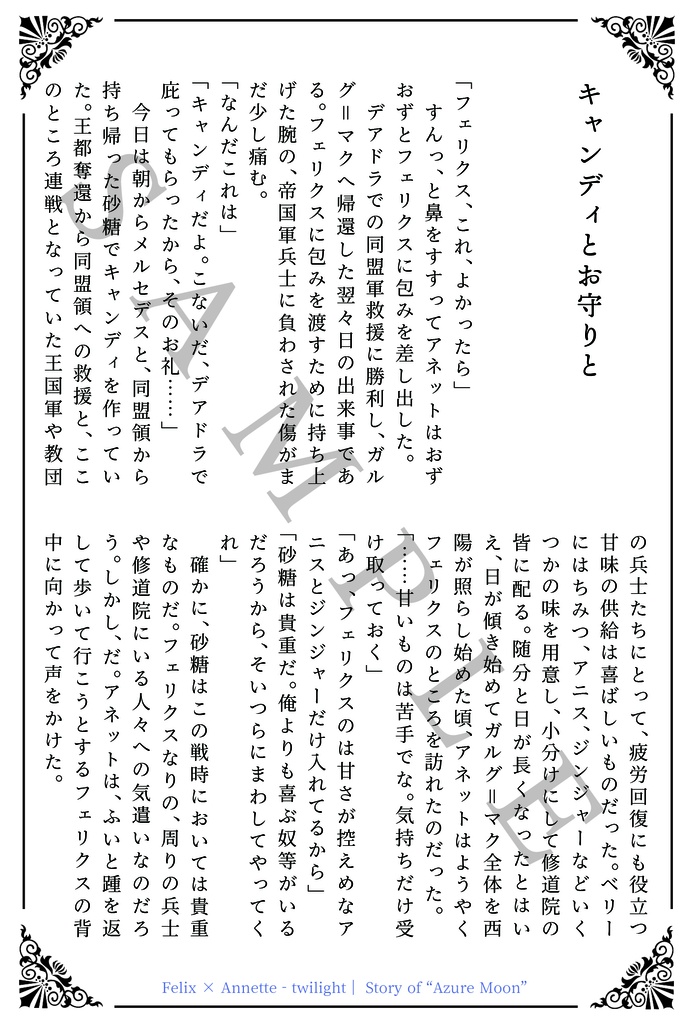 キャンディとお守りと
「フェリクス、これ、よかったら」
　すんっ、と鼻をすすってアネットはおず
おずとフェリクスに包みを差し出した。
　デアドラでの同盟軍救援に勝利し、ガル
グ＝マクへ帰還した翌々日の出来事であ
る。フェリクスに包みを渡すために持ち上
げた腕の、帝国軍兵士に負わされた傷がま
だ少し痛む。
「なんだこれは」
「キャンディだよ。こないだ、デアドラで
庇ってもらったから、そのお礼……」
　今日は朝からメルセデスと、同盟領から
持ち帰った砂糖でキャンディを作ってい
た。王都奪還から同盟領への救援と、ここ
のところ連戦となっていた王国軍や教団
の兵士たちにとって、疲労回復にも役立つ
甘味の供給は喜ばしいものだった。ベリー
にはちみつ、アニス、ジンジャーなどいく
つかの味を用意し、小分けにして修道院の
皆に配る。随分と日が長くなったとはい
え、日が傾き始めてガルグ＝マク全体を西
陽が照らし始めた頃、アネットはようやく
フェリクスのところを訪れたのだった。
「……甘いものは苦手でな。気持ちだけ受
け取っておく」
「あっ、フェリクスのは甘さが控えめなア
ニスとジンジャーだけ入れてるから」
「砂糖は貴重だ。俺よりも喜ぶ奴等がいる
だろうから、そいつらにまわしてやってく
れ」
　確かに、砂糖はこの戦時においては貴重
なものだ。フェリクスなりの、周りの兵士
や修道院にいる人々への気遣いなのだろ
う。しかし、だ。アネットは、ふいと踵を返
して歩いて行こうとするフェリクスの背
中に向かって声をかけた。
SAMPLE
Felix × Annette - twilight｜ Story of “Azure Moon”